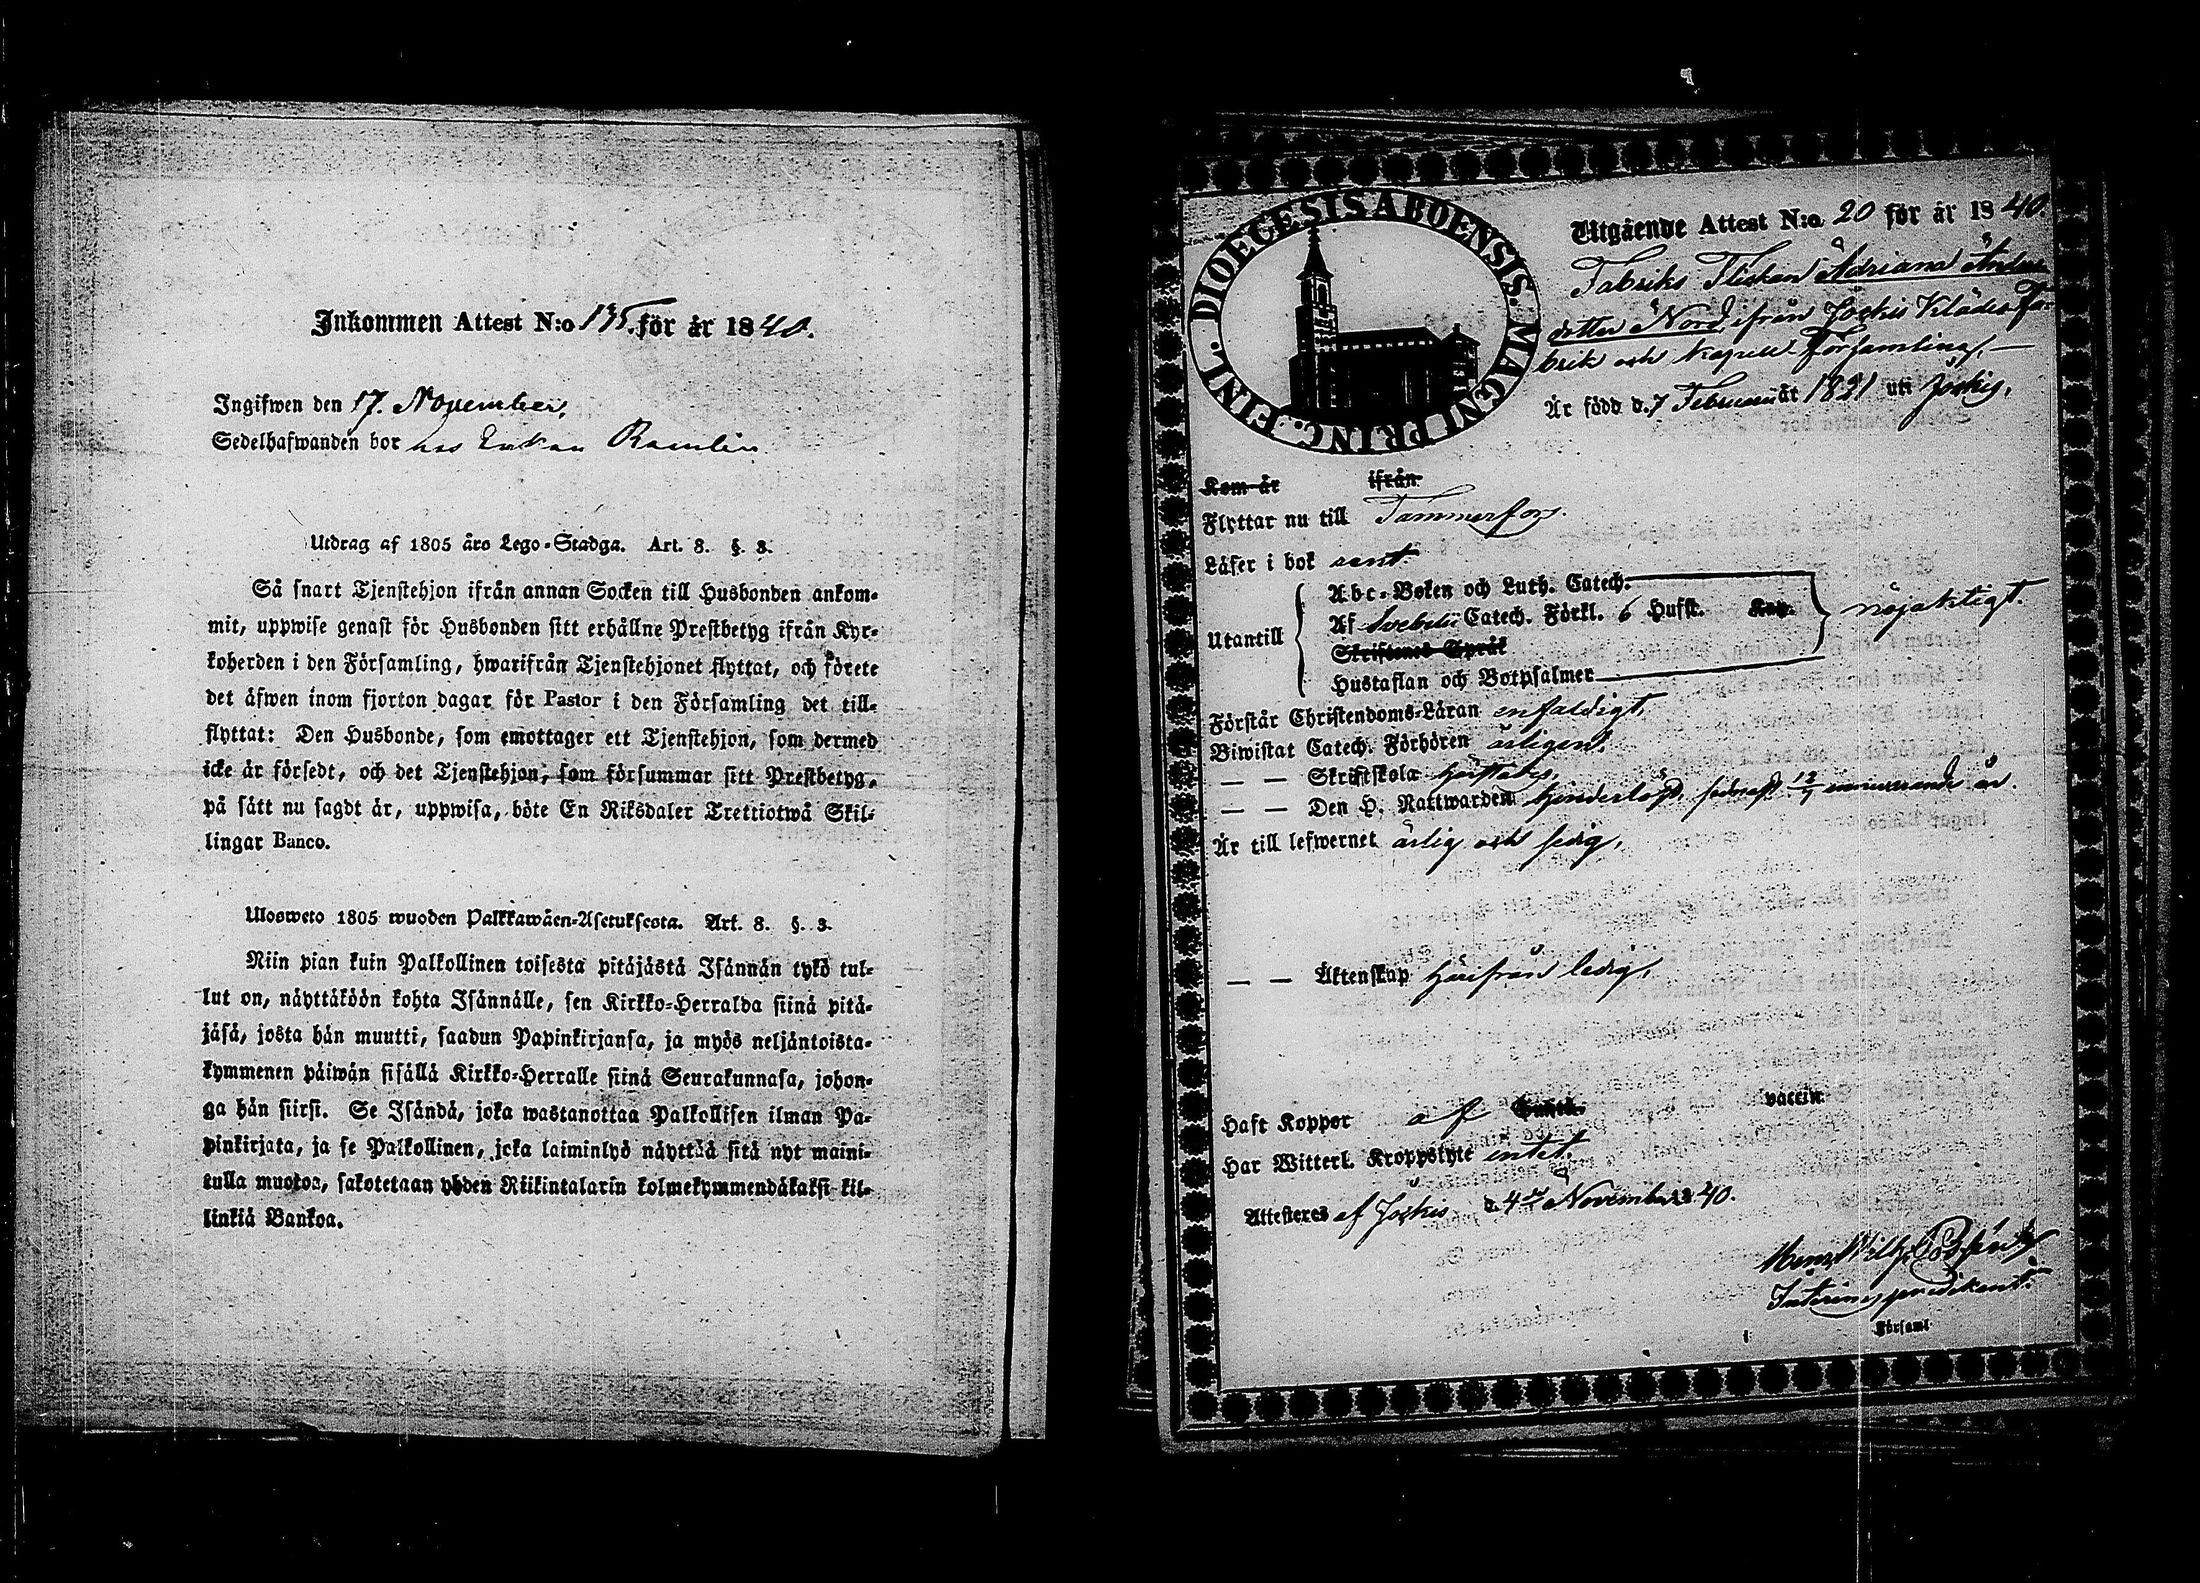 Inkommen Attest N:o 135. för år 1840.
Ingifwen den 17. November,
Sedelhafwanden bor hos Enkan Ramlin
Utdrag af 1805 års Lego-Stadga. Art. 8. §. 3.
Så snart Tjenstehjon ifrån annan Socken till Husbonden ankom-
mit, uppwise genast för Husbonden sitt erhållne Prestbetyg ifrån Kyr-
koherden i den Församling, hwarifrån Tjenstehjonet flyttat, och förete
det äfwen inom fjorton dagar för Pastor i den Församling det till-
flyttat: Den Husbonde, som emottager ett Tjenstehjon, som dermed
icke är försedt, och det Tjenstehjon, som försummar sitt Prestbetyg,
på sätt nu sagdt är, uppwisa, böte En Riksdaler Trettiotwå Skil-
lingar Banco.
Ulosweto 1805 wuoden Palkkawäen-Asetuksesta. Art. 8. §. 3.
Niin pian kuin Palkollinen toisesta pitäjästä Isännän tykö tul-
lut on, näyttäköön kohta Isännälle, sen Kirkko-Herralda siinä pitä-
jäsä, josta hän muutti, saadun Papinkirjansa, ja myös neljäntoista-
kymmenen päiwän sisällä Kirkko-Herralle siinä Seurakunnasa, johon-
ga hän siirsi. Se Isändä, joka wastanottaa Palkollisen ilman Pa-
pinkirjata, ja se Palkollinen, joka laiminlyö näyttää sitä nyt maini-
tulla muotoa, sakotetaan yhden Riikintalarin kolmekymmendäkaksi kil-
linkiä Bankoa.
DIOECESIS ABOENSIS. MAGNI PRINC. FINL.
Utgående Attest N:o 20 för år 1840.
Fabriks Flickan Adriana Anders
dotter Nord ifrån Jockis Klädes Fa-
brik och Kapell Församling,
Är född d. 7 Februari år 1821 uti Jockis,
Kom år ifrån
Flyttar nu till Tammerfors.
Läser i bok rent.
Utantill
Abc-Boken och Luth. Catech.
Af Svebilii Catech. Förkl. 6 Hufst. Kap. nöjaktigt.
Skriftenes Språk
Hustaflan och Botpsalmer
Förstår Christendoms-Läran enfaldigt,
Biwistat Catech. Förhören årligen,
— — Skriftskola
— — Den H. Nattwarden sednast 12/7 innevarande år.
Är till lefwernet ärlig och sedig,
— — Äktenskap härifrån ledig,
Haft Koppor af vaccin.
Har Witterl. Kroppslyte intet.
Attesteras af Jockis d. 4de November 1840.
Interimspredikant.
Församl